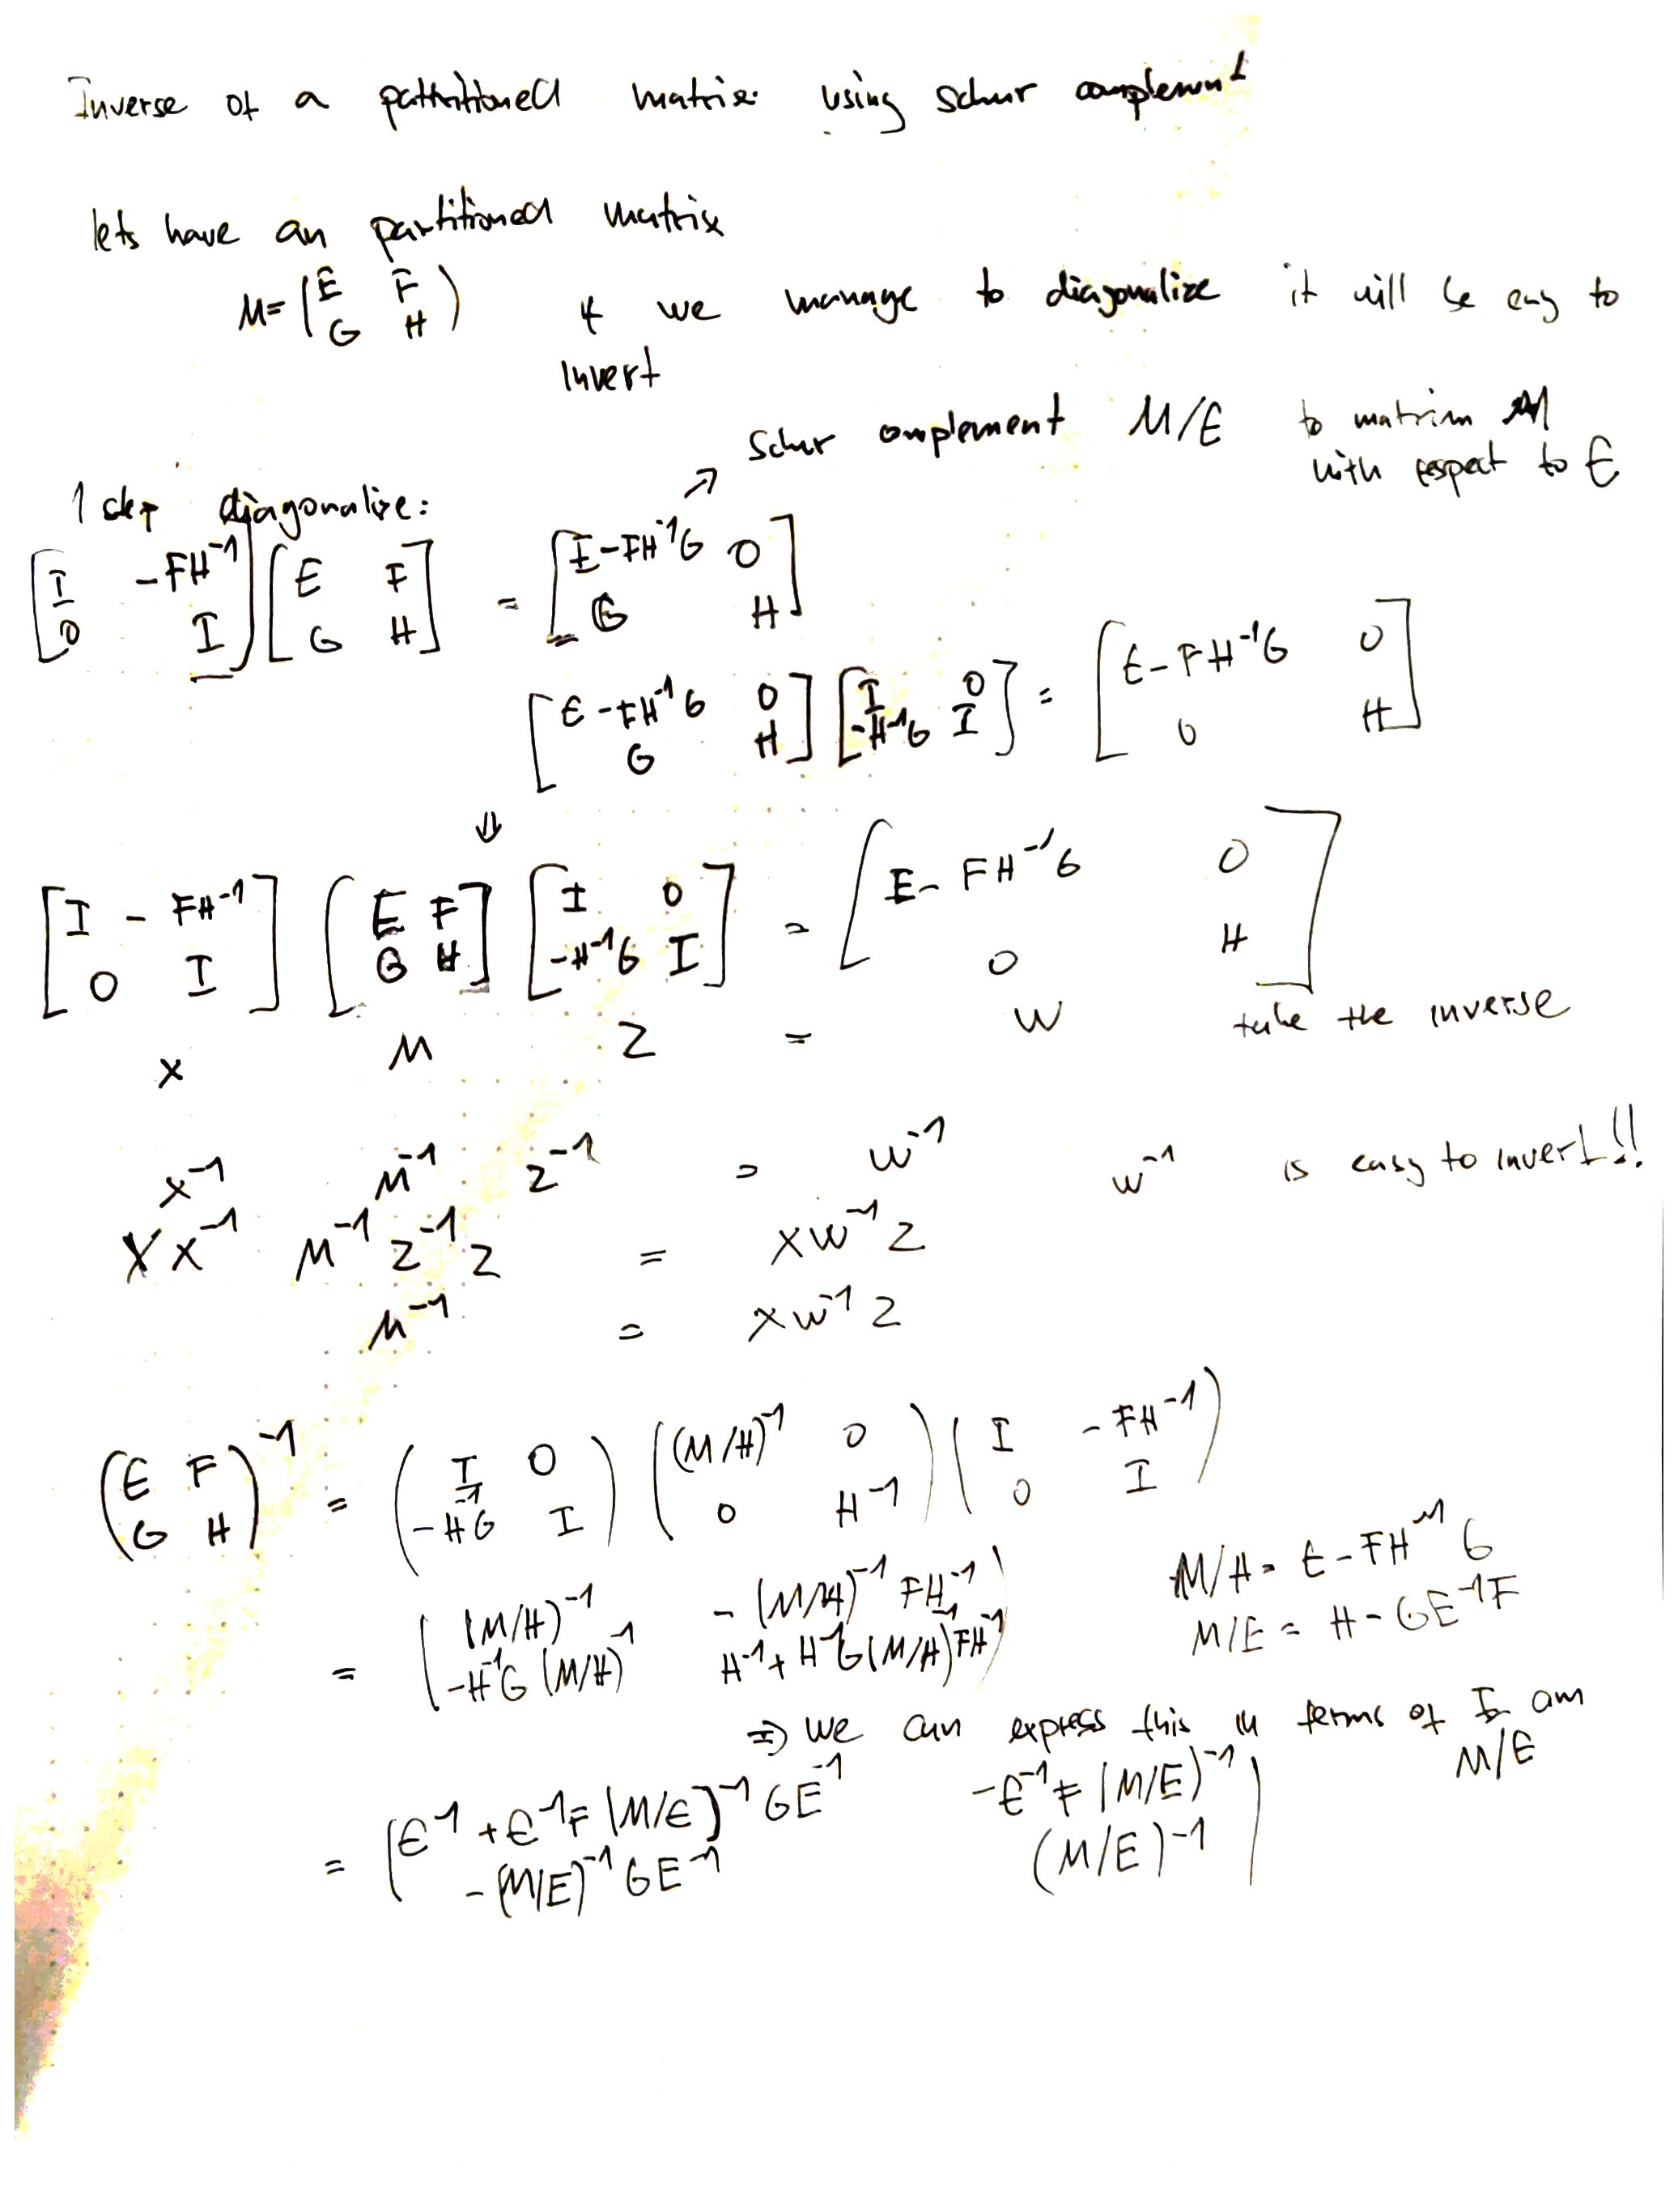 Inverse of a partritioned matrix using schur complement
lets have an partitioned matrix
M= (E F
G H) if we manage to diagonalize it will be easy to
invert
Schur complement M/E to matrix M
with respect to E
1 step diagonalize:
[I -FH⁻¹
0 I] [E F
G H] = [E-FH⁻¹G 0
G H]
[E-FH⁻¹G 0
G H] [I 0
-H⁻¹G I] = [E-FH⁻¹G 0
0 H]
⇓
[I - FH⁻¹
0 I] [E F
G H] [I 0
-H⁻¹G I] = [E- FH⁻¹G 0
0 H]
X M Z = W take the inverse
X⁻¹ M⁻¹ Z⁻¹ = W⁻¹ W⁻¹ is easy to invert!!
XX⁻¹ M⁻¹ Z⁻¹ Z = XW⁻¹Z
M⁻¹ = XW⁻¹Z
(E F
G H)⁻¹ = (I 0
-H⁻¹G I) ((M/H)⁻¹ 0
0 H⁻¹) (I -FH⁻¹
0 I)
M/H = E-FH⁻¹G
M/E = H-GE⁻¹F
= ((M/H)⁻¹ -(M/H)⁻¹FH⁻¹
-H⁻¹G(M/H)⁻¹ H⁻¹+H⁻¹G(M/H)⁻¹FH⁻¹)
⇒ we can express this in terms of E am
M/E
= (E⁻¹+E⁻¹F(M/E)⁻¹GE⁻¹ -E⁻¹F(M/E)⁻¹
-(M/E)⁻¹GE⁻¹ (M/E)⁻¹)